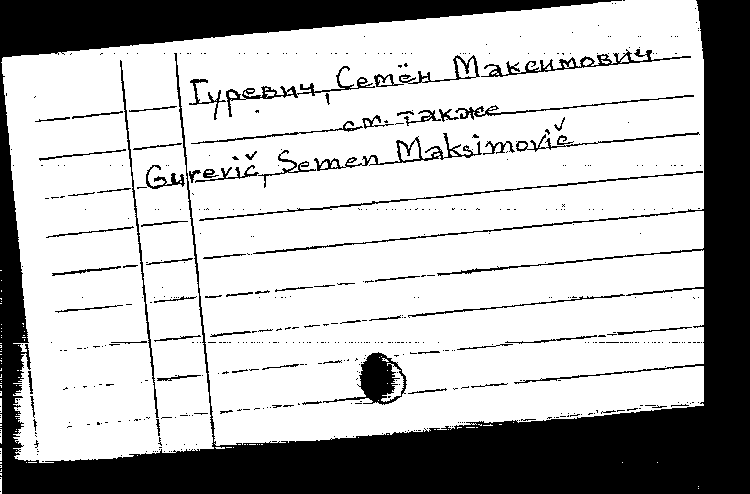 Гуревич, Семён Максимович
см. также
Gurevič, Semen Maksimovič